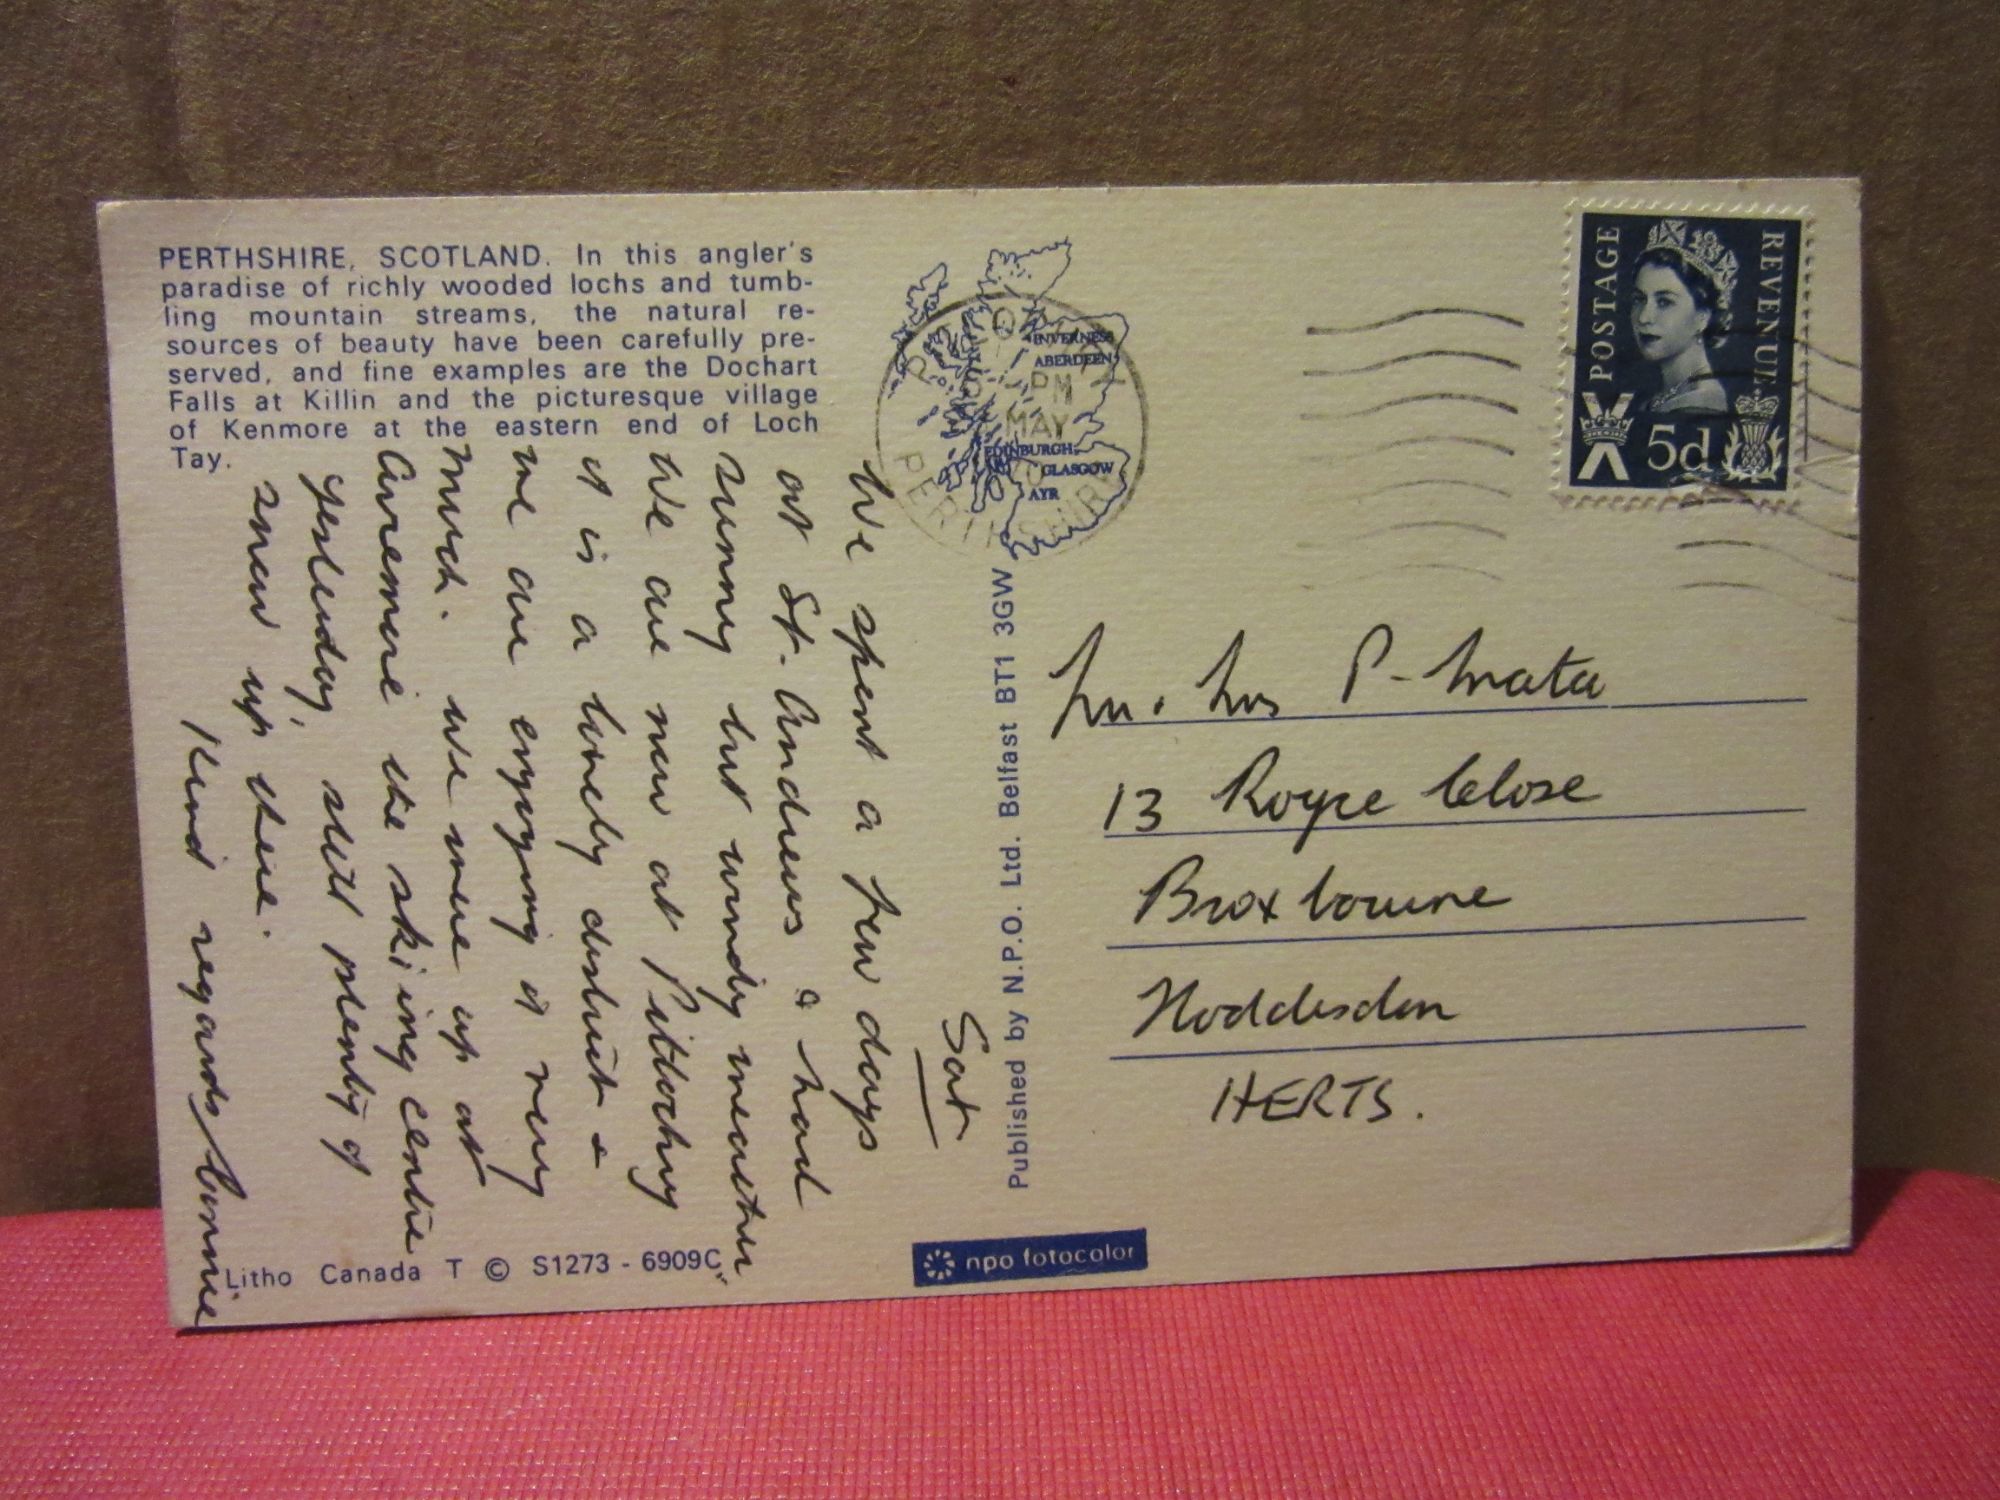 PERTHSHIRE, SCOTLAND. In this angler's
paradise of richly wooded lochs and tumb-
ling mountain streams, the natural re-
sources of beauty have been carefully pre-
served, and fine examples are the Dochart
Falls at Killin and the picturesque village
of Kenmore at the eastern end of Loch
Tay.
Sat
We spent a few days
at St. Andrews & had
sunny but windy weather
We are now at Pitlochry
it is a lovely district &
we are enjoying it very
much. We were up at
Aviemore the skiing centre
yesterday, still plenty of
snow up there.
Kind regards, Connie
Litho Canada T © S1273 - 6909C
Published by N.P.O. Ltd. Belfast BT1 3GW
npo fotocolor
INVERNESS
ABERDEEN
EDINBURGH
GLASGOW
AYR
PM
MAY
PERTHSHIRE
POSTAGE
REVENUE
5d
Mr. Mrs P. Mata
13 Royce Close
Broxbourne
Hoddesdon
HERTS.